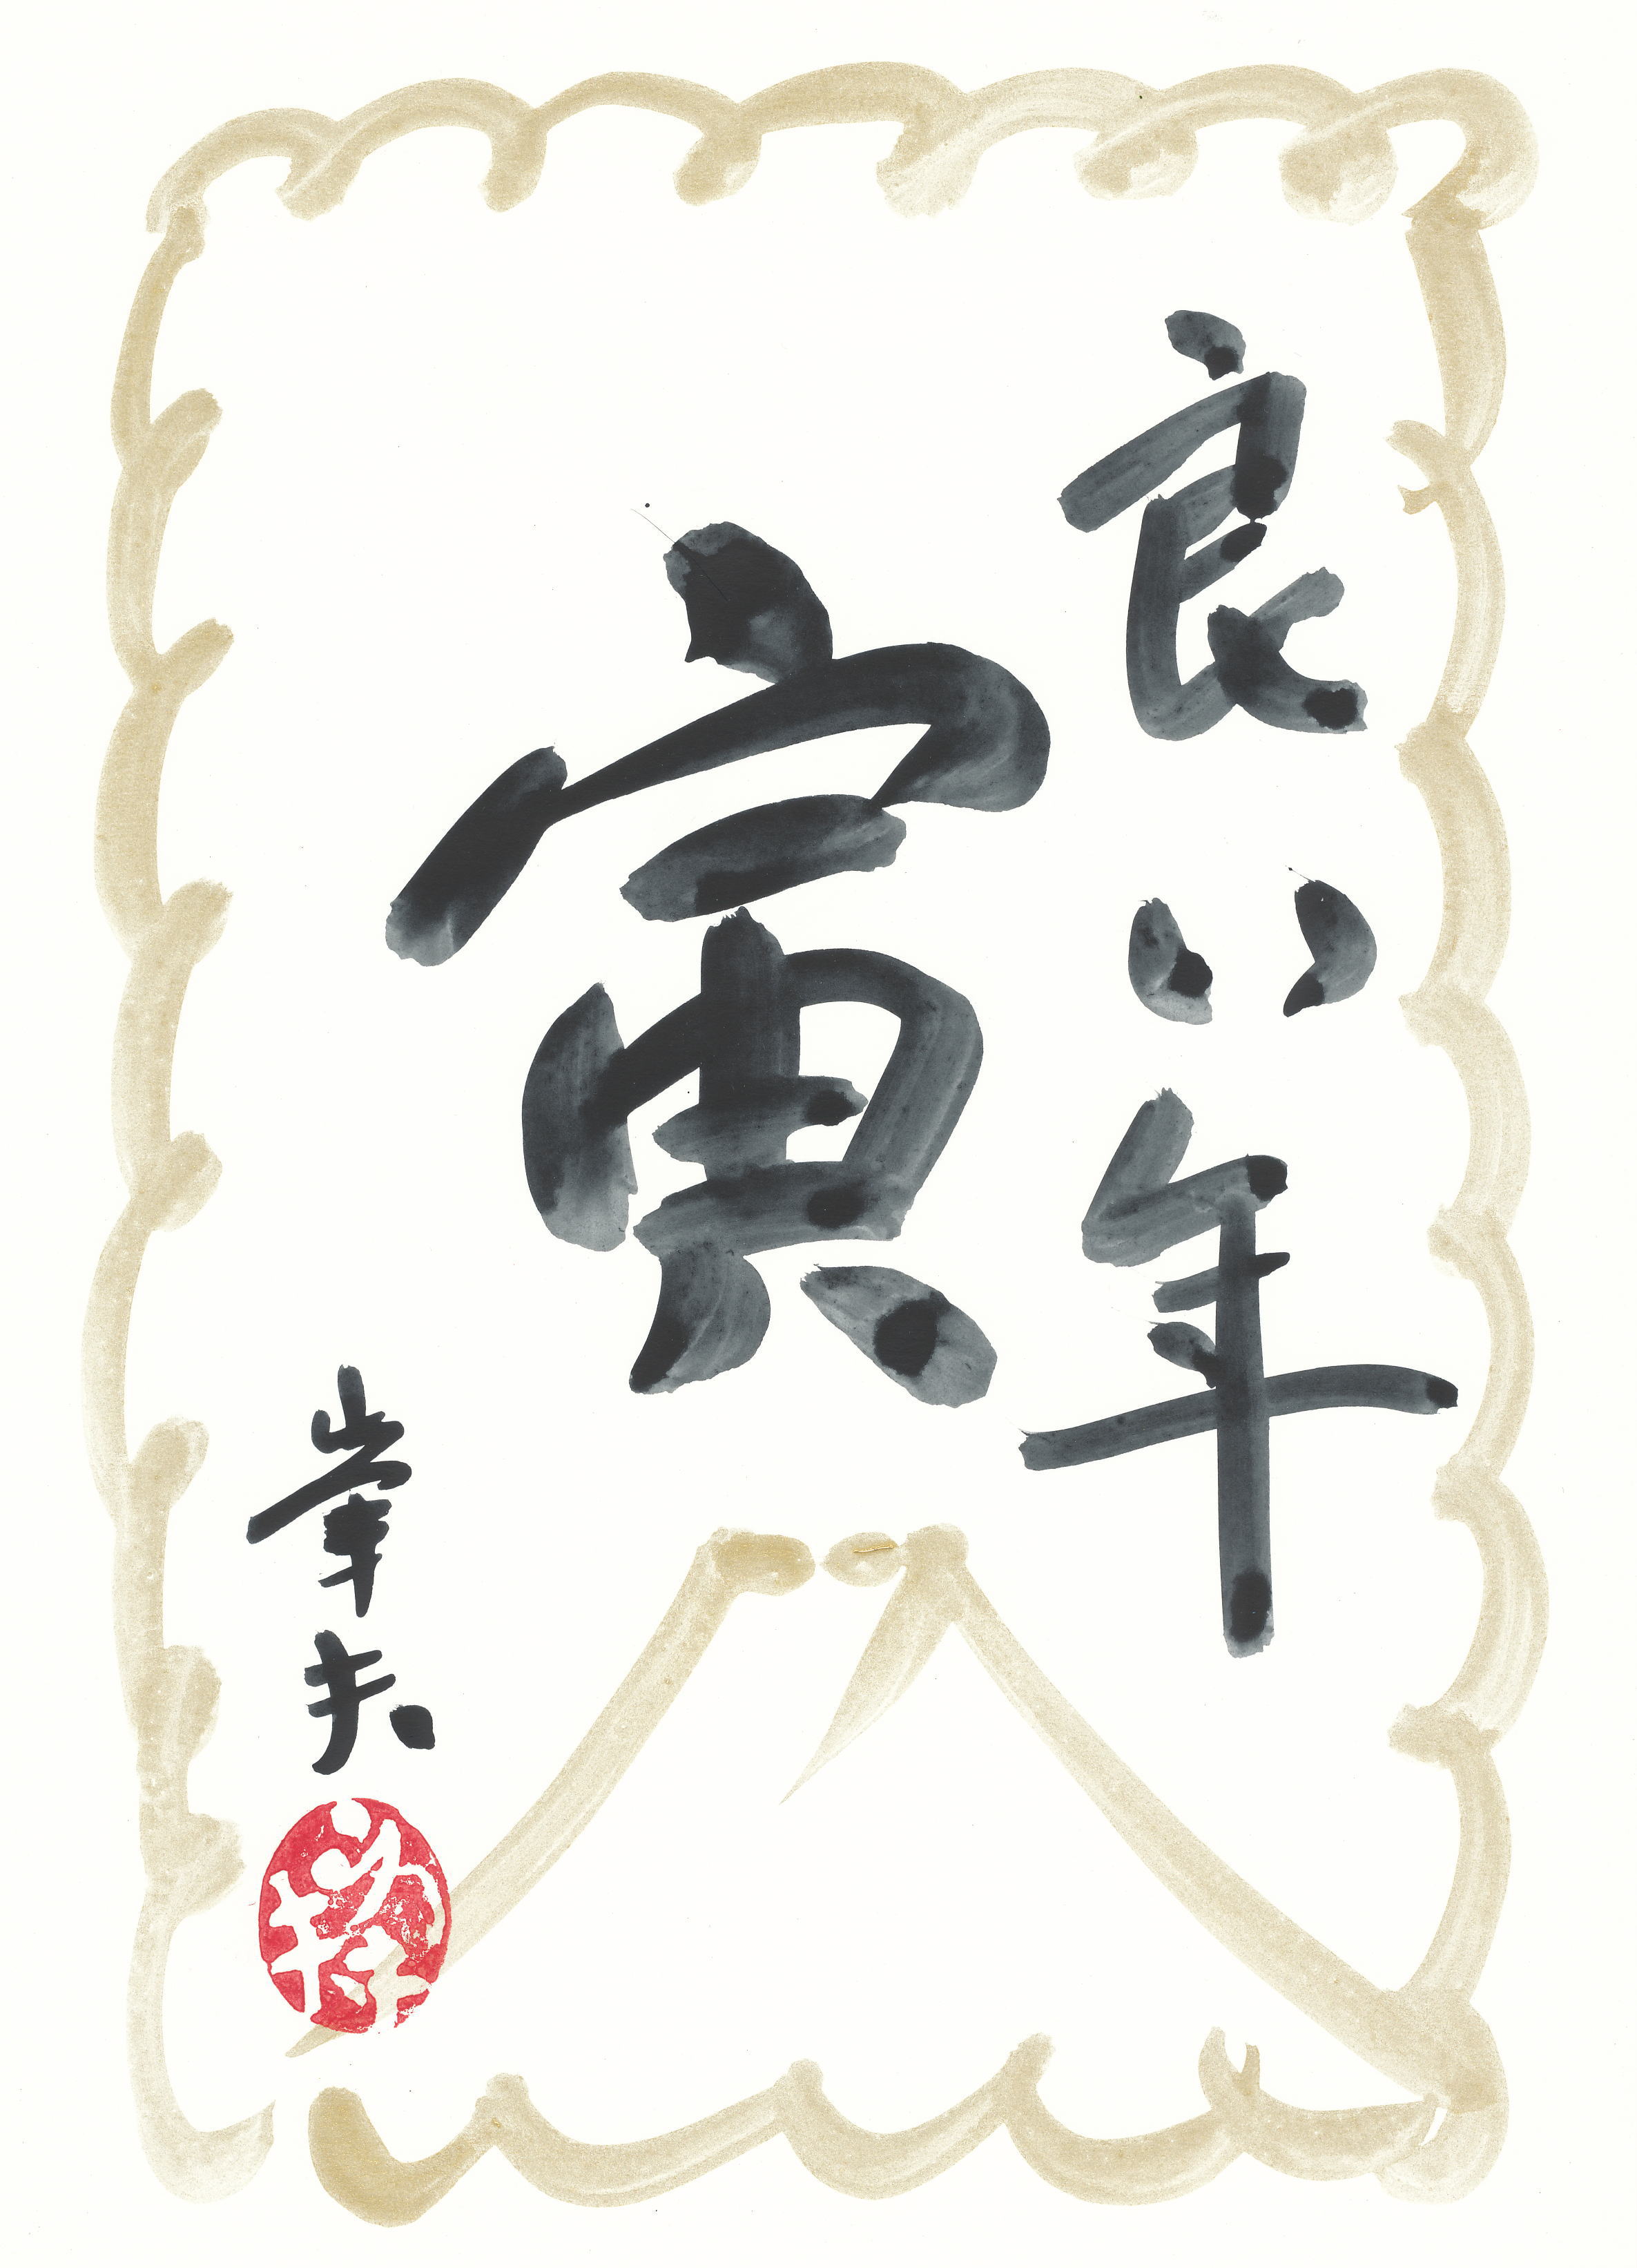 良い年
寅
峯夫